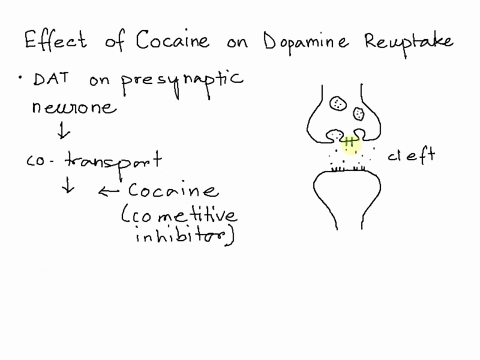 Effect of Cocaine on Dopamine Reuptake
• DAT on presynaptic
neurone
↓
co-transport
↓ ← Cocaine
(cometitive
inhibitor)
cleft